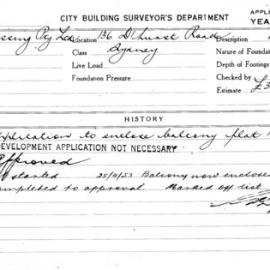 CITY BUILDING SURVEYOR'S DEPARTMENT
APPLE
YEAR
Pty Ltd Location 136 Road Description
Class Sydney Nature of Foundat
Live Load Depth of Footings
Foundation Pressure Checked by
Estimat
HISTORY
application to enclose balcony flat
DEVELOPMENT APPLICATION NOT NECESSARY
Approved
started 25/11/53 Balcony now enclosed
completed to approval. Marked off list